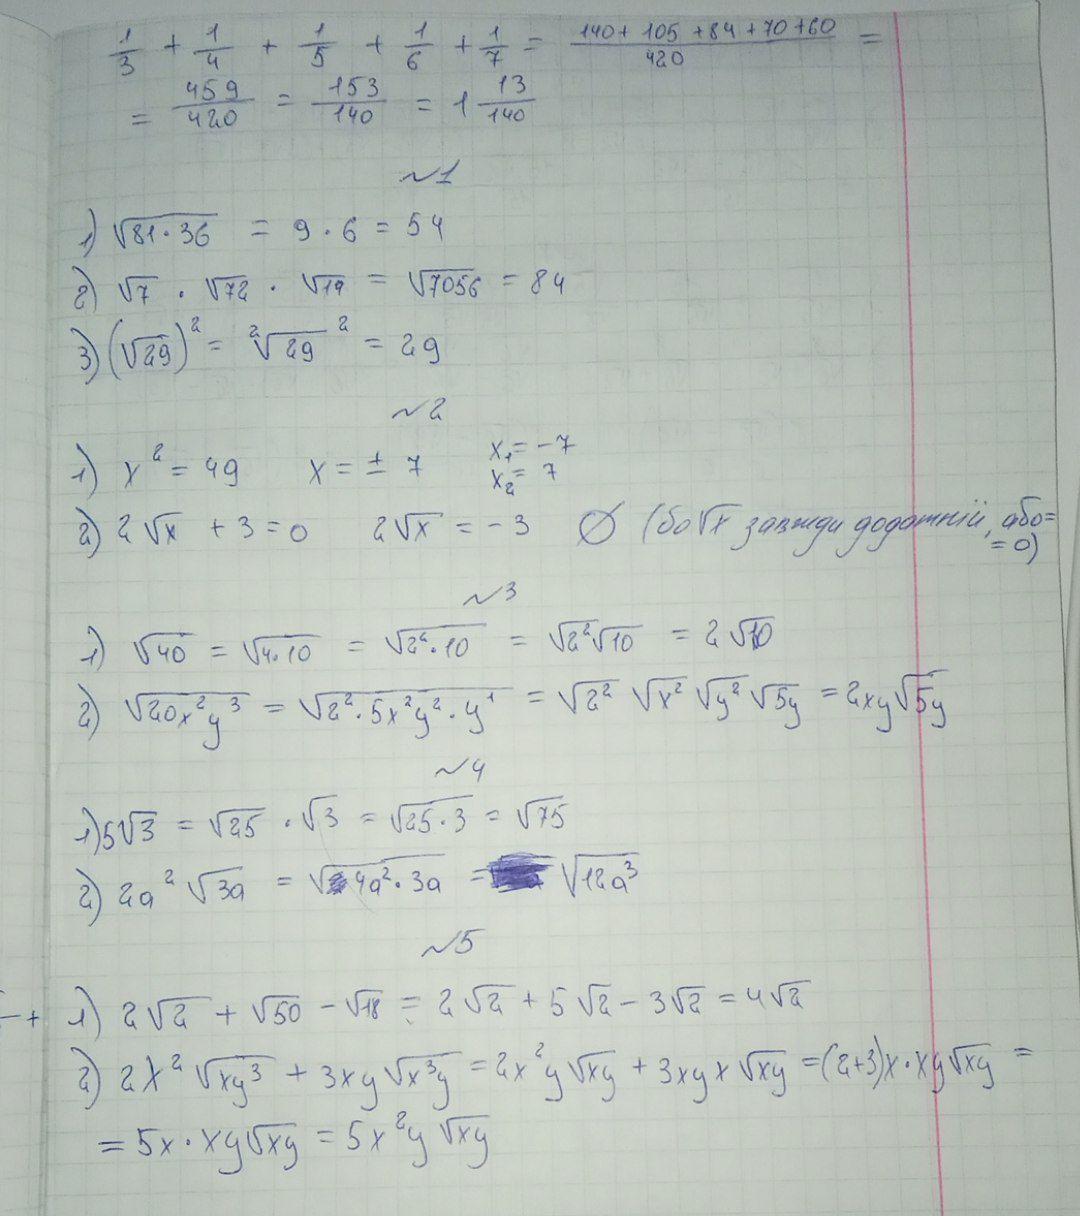 1/3 + 1/4 + 1/5 + 1/6 + 1/7 = (140 + 105 + 84 + 70 + 60)/420 =
= 459/420 = 153/140 = 1 13/140
~1
1) √(81·36) = 9 · 6 = 54
2) √7 · √72 · √14 = √7056 = 84
3) (√29)² = ²√29² = 29
~2
1) x² = 49 x = ± 7 x₁ = -7 x₂ = 7
2) 2√x + 3 = 0 2√x = -3 ∅ (бо √x завжди додатній, або =
= 0)
~3
1) √40 = √(4·10) = √(2²·10) = √2²√10 = 2√10
2) √(20x²y³) = √(2²·5x²y²·y¹) = √2² √x² √y² √5y = 2xy√5y
~4
1) 5√3 = √25 · √3 = √(25·3) = √75
2) 2a² √3a = √(4a²·3a) = √(12a³)
~5
1) 2√2 + √50 - √18 = 2√2 + 5√2 - 3√2 = 4√2
2) 2x² √(xy³) + 3xy√(x³y) = 2x²y√xy + 3xyx√xy = (2+3)x·xy√xy =
= 5x·xy√xy = 5x²y√xy